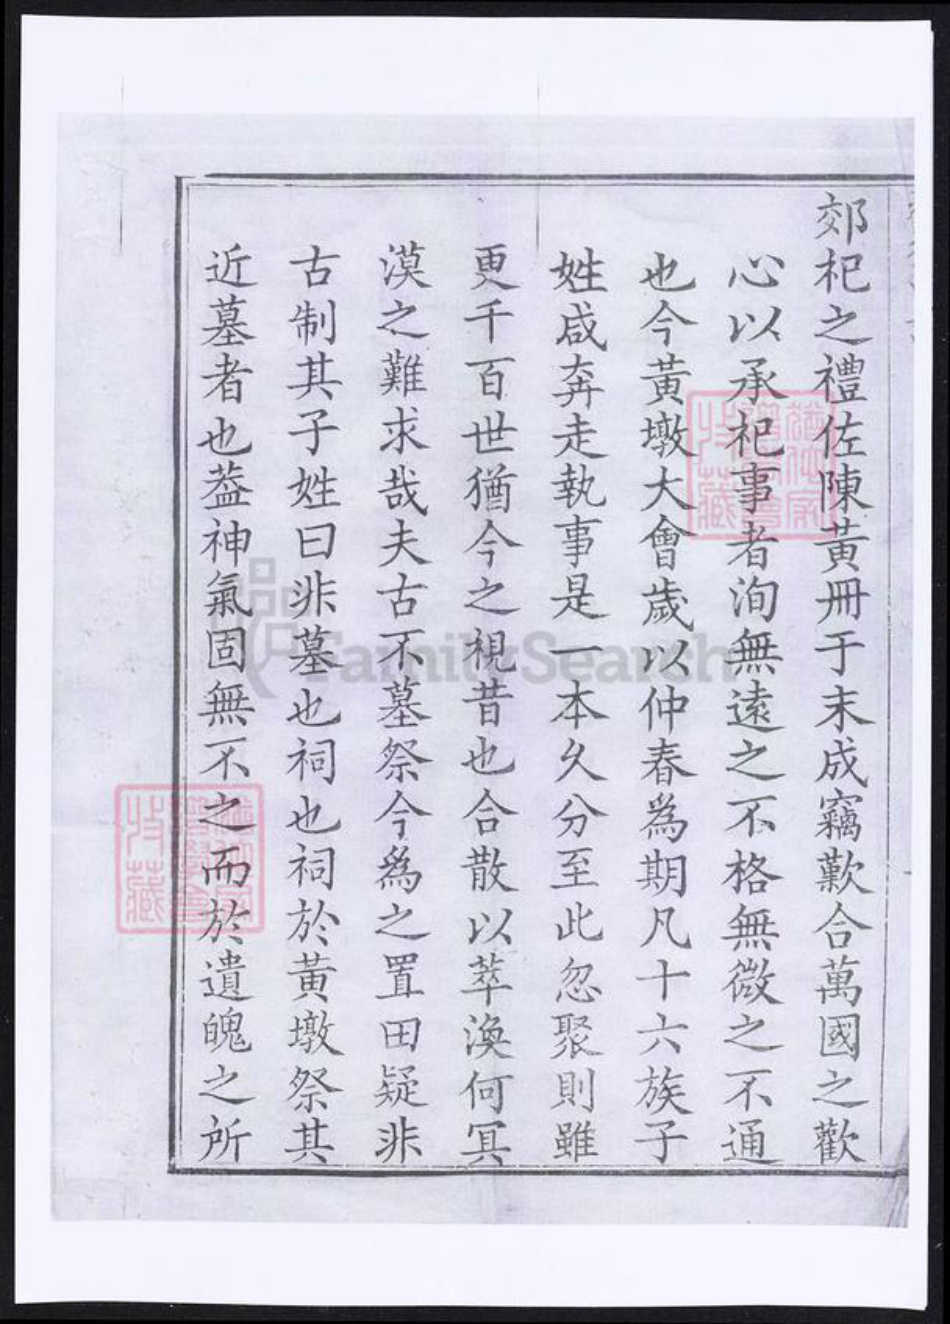 郊祀之禮佐陳黃冊于末成竊歎合萬國之歡
心以承祀事者洵無遠之不格無微之不通
也今黃墩大會歲以仲春為期凡十六族子
姓咸奔走執事是一本久分至此忽聚則雖
更千百世猶今之視昔也合散以萃渙何冥
漠之難求哉夫古不墓祭今為之置田疑非
古制其子姓曰非墓也祠也祠於黃墩祭其
近墓者也葢神氣固無不之而於遺魄之所
FamilySearch